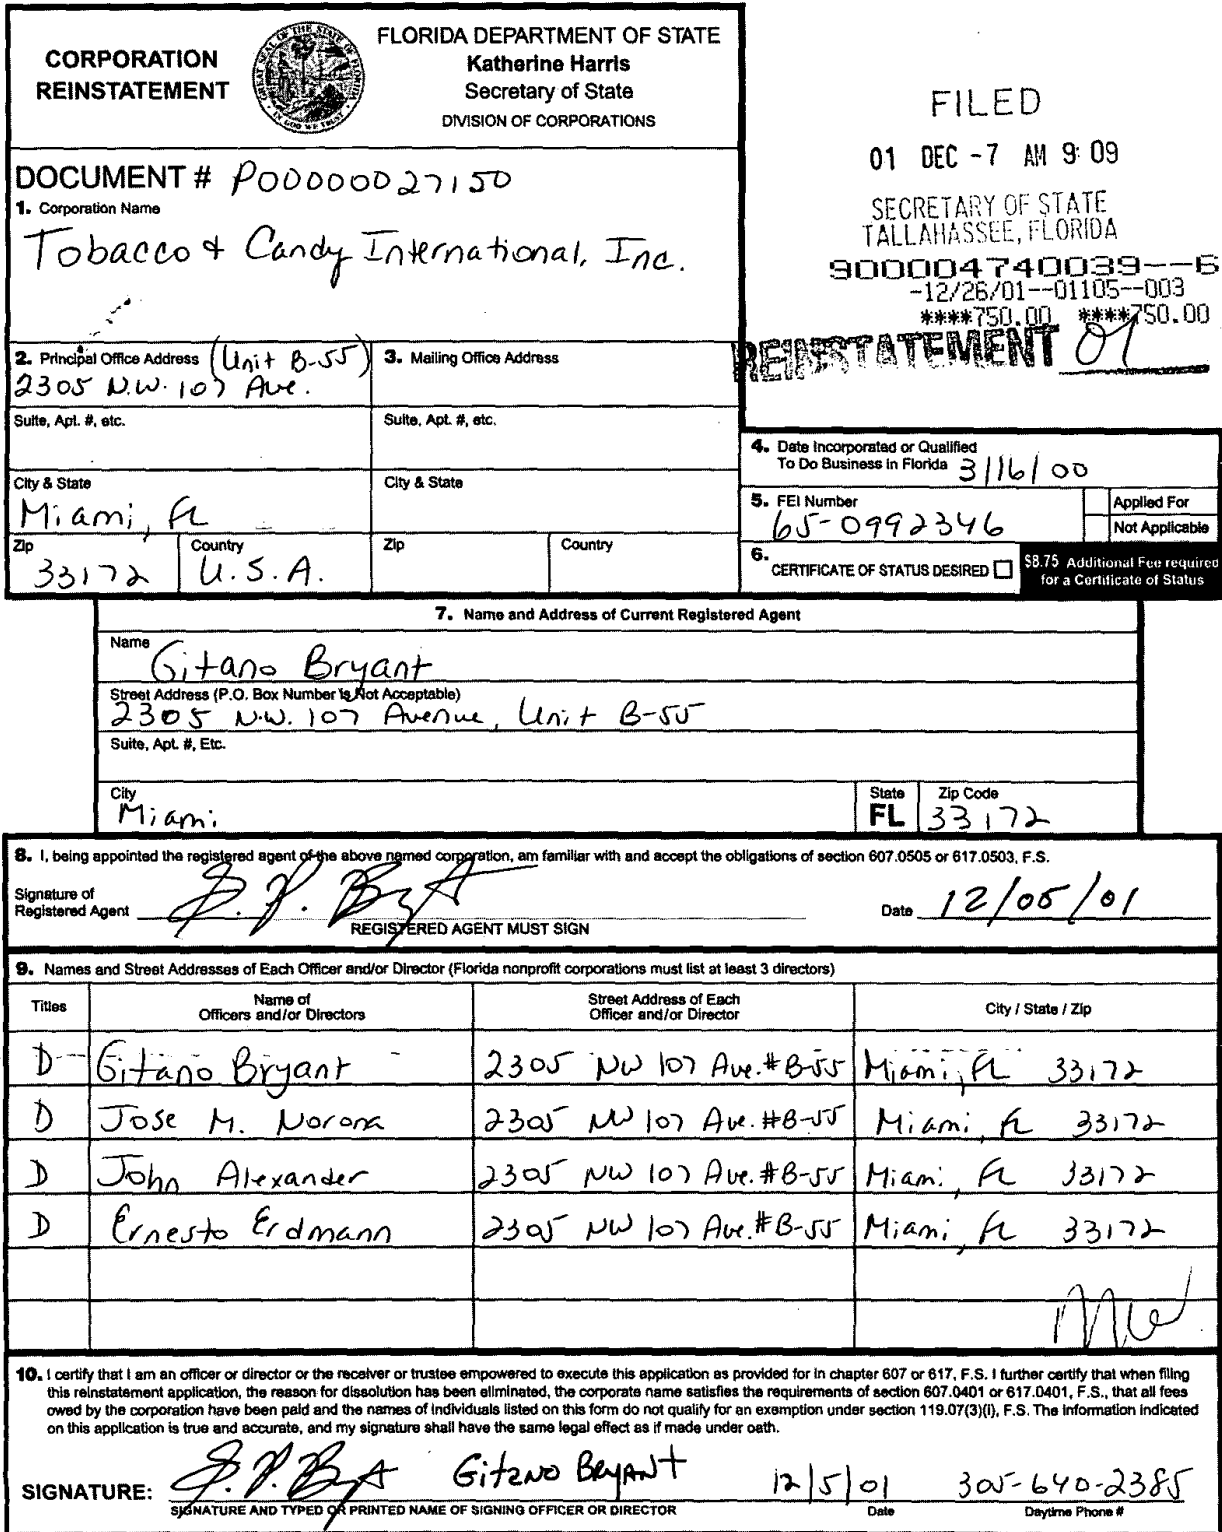 CORPORATION
REINSTATEMENT
GREAT SEAL OF THE STATE OF FLORIDA
IN GOD WE TRUST
FLORIDA DEPARTMENT OF STATE
Katherine Harris
Secretary of State
DIVISION OF CORPORATIONS
FILED
01 DEC -7 AM 9:09
SECRETARY OF STATE
TALLAHASSEE, FLORIDA
900004740039--6
-12/26/01--01105--003
****750.00 ****750.00
REINSTATEMENT 01
DOCUMENT # P00000027150
1. Corporation Name
Tobacco & Candy International, Inc.
2. Principal Office Address (Unit B-55)
2305 N.W. 107 Ave.
3. Mailing Office Address
Suite, Apt. #, etc.
Suite, Apt. #, etc.
City & State
Miami, FL
City & State
Zip
33172
Country
U.S.A.
Zip
Country
4. Date Incorporated or Qualified
To Do Business in Florida 3/16/00
5. FEI Number
65-0992346
Applied For
Not Applicable
6. CERTIFICATE OF STATUS DESIRED
$8.75 Additional Fee required
for a Certificate of Status
7. Name and Address of Current Registered Agent
Name
Gitano Bryant
Street Address (P.O. Box Number Is Not Acceptable)
2305 N.W. 107 Avenue, Unit B-55
Suite, Apt. #, Etc.
City
Miami
State
FL
Zip Code
33172
8. I, being appointed the registered agent of the above named corporation, am familiar with and accept the obligations of section 607.0505 or 617.0503, F.S.
Signature of
Registered Agent
Date 12/05/01
REGISTERED AGENT MUST SIGN
9. Names and Street Addresses of Each Officer and/or Director (Florida nonprofit corporations must list at least 3 directors)
Titles
Name of
Officers and/or Directors
Street Address of Each
Officer and/or Director
City / State / Zip
D Gitano Bryant 2305 NW 107 Ave. #B-55 Miami, FL 33172
D Jose M. Norona 2305 NW 107 Ave. #B-55 Miami, FL 33172
D John Alexander 2305 NW 107 Ave. #B-55 Miami, FL 33172
D Ernesto Erdmann 2305 NW 107 Ave. #B-55 Miami, FL 33172
10. I certify that I am an officer or director or the receiver or trustee empowered to execute this application as provided for in chapter 607 or 617, F.S. I further certify that when filing
this reinstatement application, the reason for dissolution has been eliminated, the corporate name satisfies the requirements of section 607.0401 or 617.0401, F.S., that all fees
owed by the corporation have been paid and the names of individuals listed on this form do not qualify for an exemption under section 119.07(3)(i), F.S. The information indicated
on this application is true and accurate, and my signature shall have the same legal effect as if made under oath.
SIGNATURE: Gitano Bryant 12/5/01 305-640-2385
SIGNATURE AND TYPED OR PRINTED NAME OF SIGNING OFFICER OR DIRECTOR
Date
Daytime Phone #